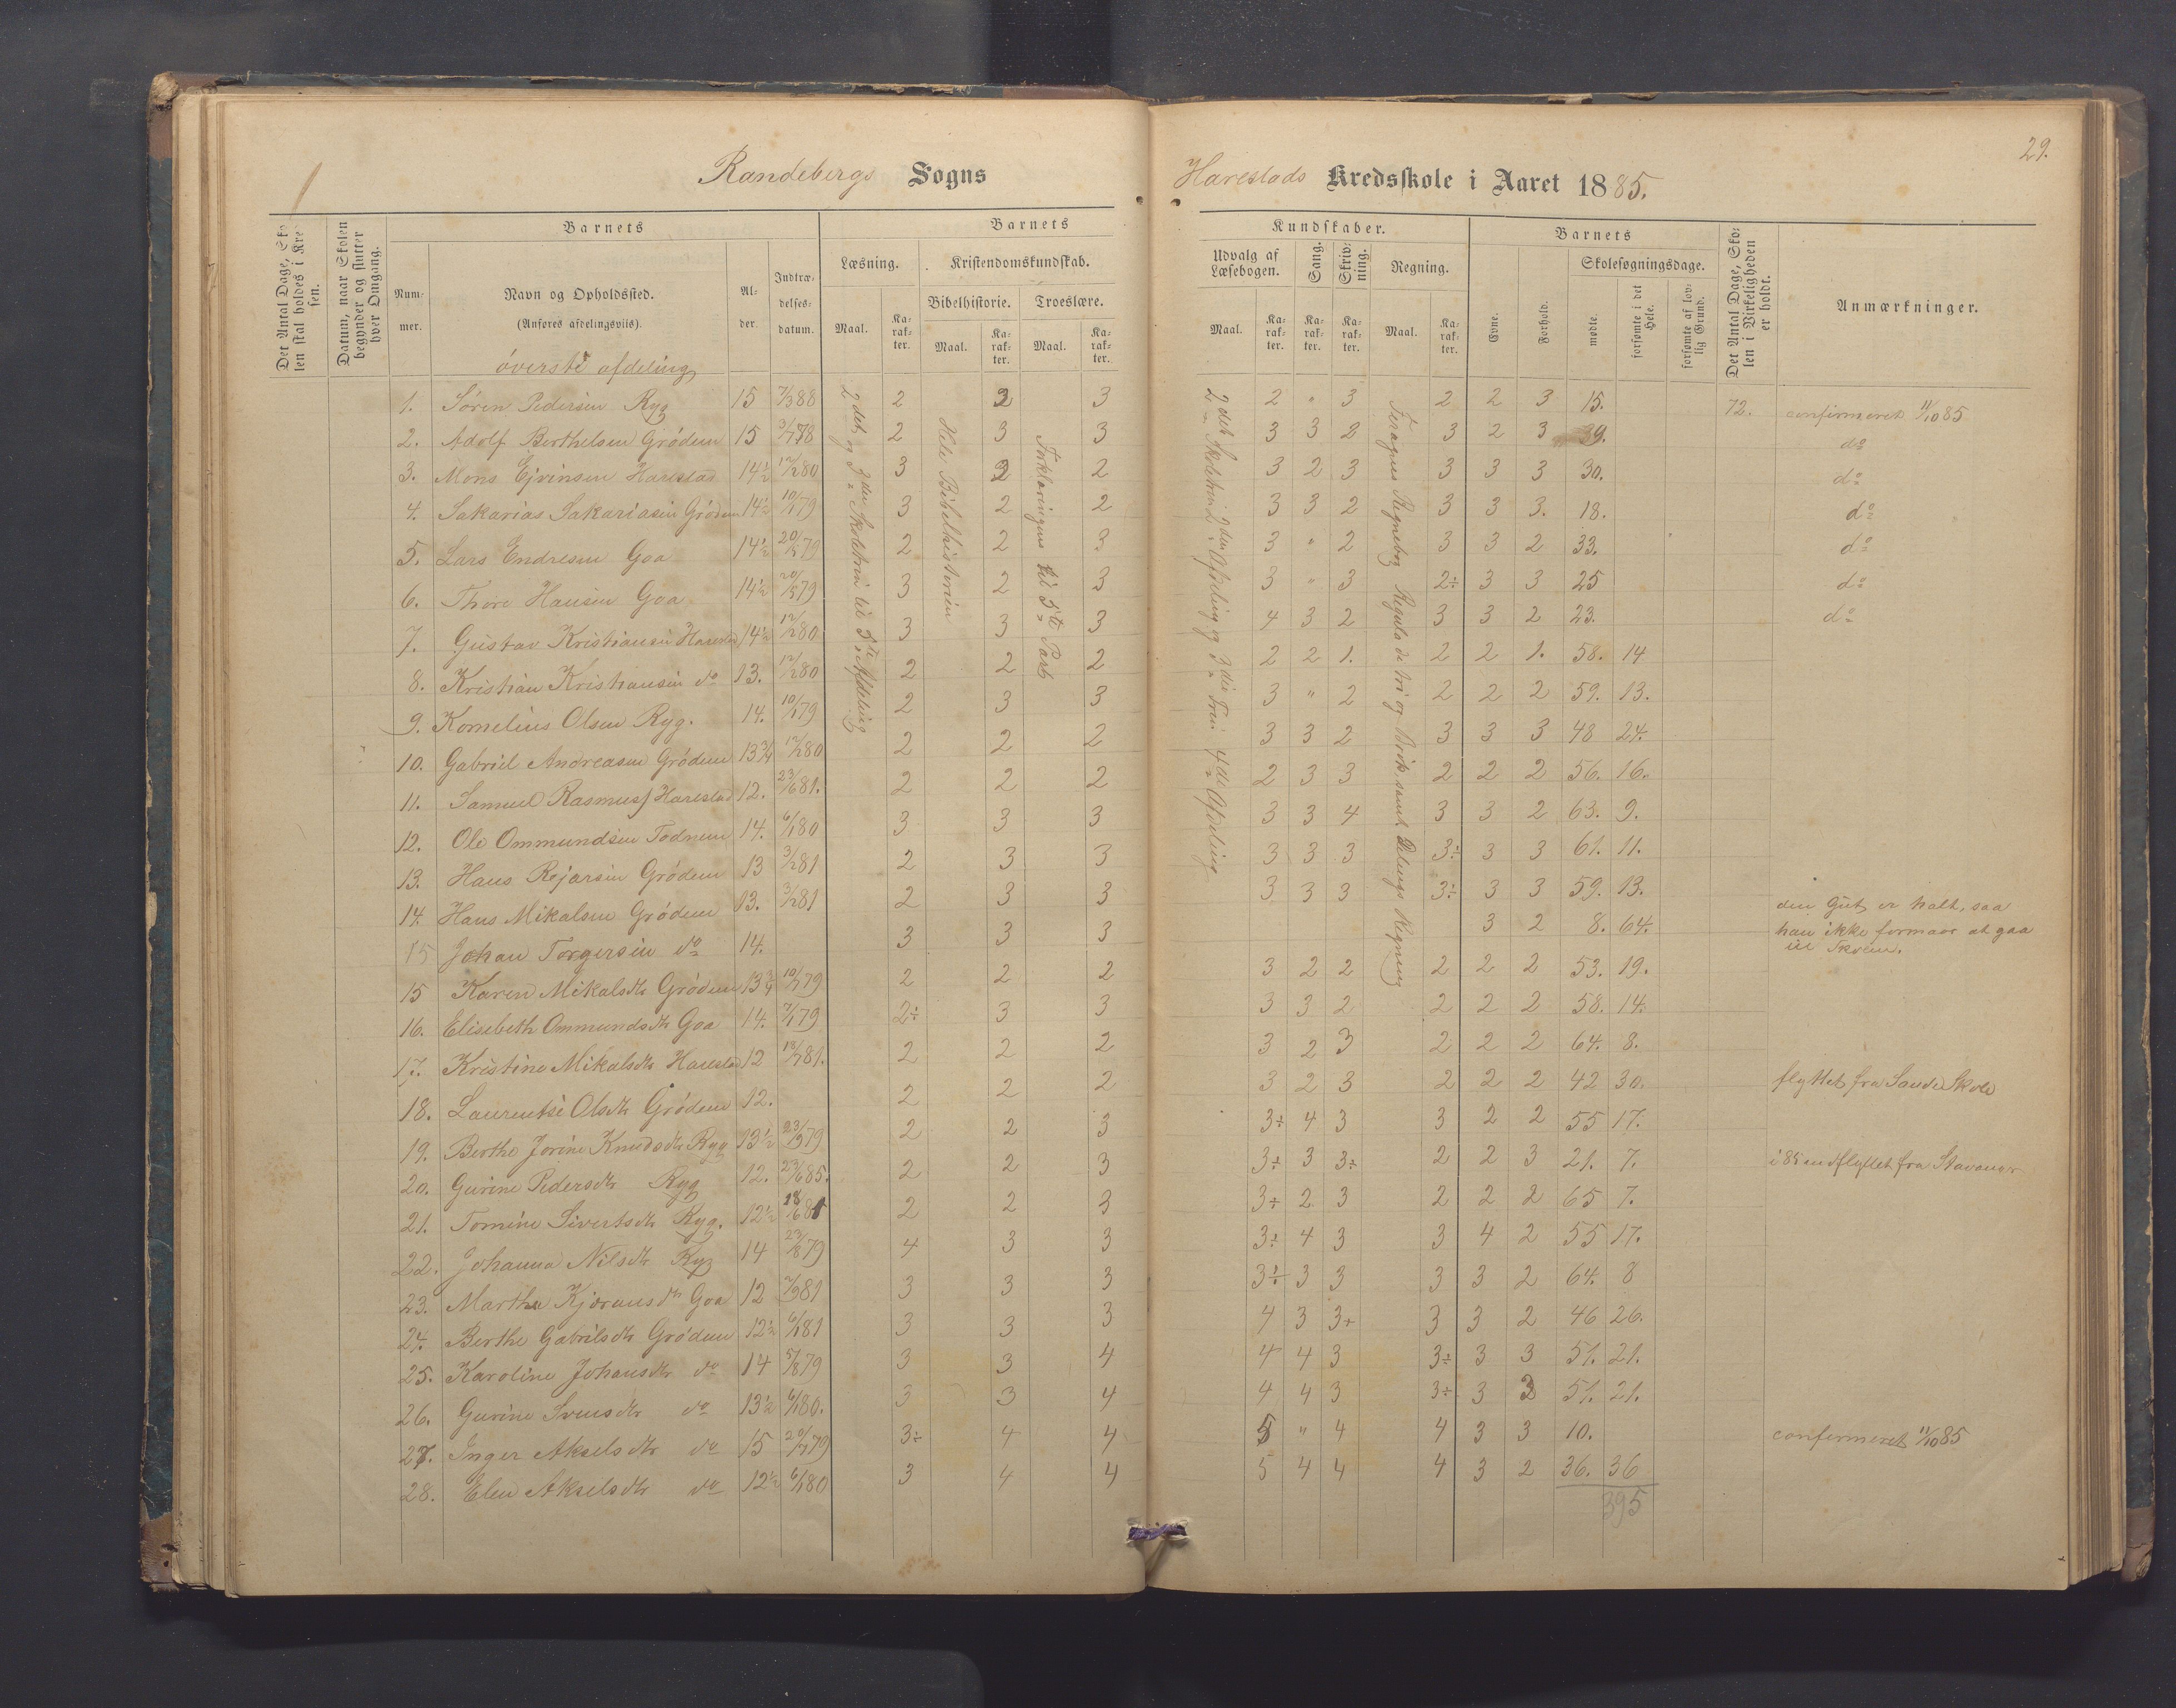 29.
Randebergs Sogns
Harestads Kredsskole i Aaret 1885.
Det Antal Dage, Sko-
len skal holdes i Kre-
sen.
Datum, naar Skolen
begynder og slutter
hver Omgang.
Barnets
Num-
mer.
Navn og Opholdssted.
(Anføres afdelingsviis).
Al-
der.
Indtræ-
delses-
datum.
Barnets
Læsning.
Kristendomskundskab.
Bibelhistorie.
Troeslære.
Maal.
Ka-
rak-
ter.
Maal.
Ka-
rak-
ter.
Maal.
Ka-
rak-
ter.
Kundskaber.
Udvalg af
Læsebogen.
Sang.
Skriv-
ning.
Regning.
Maal.
Ka-
rak-
ter.
Ka-
rak-
ter.
Ka-
rak-
ter.
Maal.
Ka-
rak-
ter.
Barnets
Evne.
Forhold.
Skolesøgningsdage.
mødte.
forsømte i det
Hele.
forsømte af lov-
lig Grund.
Det Antal Dage, Sko-
len i Virkeligheden
er holdt.
Anmærkninger.
øverste afdeling
2det og 3die Skoletrin til 5te Afdeling
Hele Bibelhistorien
Forklaringens til 5te Part
2det Skoletrin 2den Afdeling og 3die Trin 4de Afdeling
Regnebog Regula de tri og Brøk, samt Regning
1. Søren Pedersen Ryg 15 7/3 88 2 3 3 2 " 3 2 2 3 15. 72. confirmeret 11/10 85
2. Adolf Berthelsen Grødem 15 2 3 3 3 3 2 3 2 3 39. do
3. Mons Ejvinsen Harestad 14½ 12/1 80 3 2 2 3 2 3 3 3 3 30. do
4. Sakarias Sakariasen Grødem 14½ 10/1 79 3 2 2 3 3 2 3 3 3. 18. do
5. Lars Endresen Goa 14½ 2 2 3 3 " 2 3 3 2 33. do
6. Thore Hansen Goa 14½ 20/5 79 3 2 3 3 " 3 2÷ 3 3 25 do
7. Gustav Kristiansen Harestad 14½ 12/1 80 3 3 3 4 3 2 3 3 2 23. do
8. Kristian Kristiansen do 13. 12/1 80 2 2 2 2 2 1. 2 2 1. 58. 14
9. Kornelius Olsen Ryg. 14. 10/1 79 2 3 3 3 " 2 2 2 2 59. 13.
10. Gabriel Andreasen Grødem 13¾ 12/1 80 2 2 2 3 3 2 3 3 3 48 24.
11. Samuel Rasmus Harestad 12. 23/6 81. 2 2 2 2 3 3 2 2 2 56. 16.
12. Ole Ommundsen Todnem 14. 6/1 80 3 3 3 3 3 4 3 3 2 63. 9.
13. Hans Rejarsen Grødem 13 3/1 81 2 3 3 3 3 3 3÷ 3 3 61. 11.
14. Hans Mikalsen Grødem 13. 3/1 81 2 3 3 3 3 3 3÷ 3 3 59. 13.
15 Johan Torgersen do 14. 3 3 3 3 2 8. 64. den Gut er halt, saa
han ikke formaar at gaa
til Skolen.
15 Karen Mikalsdtr Grødem 13¾ 10/1 79 2 2 2 3 2 2 2 2 2 53. 19.
16. Elisebeth Ommundsdtr Goa 14. 7/1 79 2÷ 3 3 3 3 2 2 2 2 58. 14.
17. Kristine Mikalsdtr Harestad 12 18/1 81. 2 2 2 3 2 3 2 2 2 64. 8.
18. Laurentse Olsdtr Grødem 12. 2 2 2 3 2 3 2 2 2 42 30. flyttet fra Sande Skole
19. Berthe Jorine Knudsdtr Ryg 13½ 2 2 3 3÷ 4 3 3 2 2 55 17.
20. Gurine Pedersdtr Ryg 12. 23/6 85. 2 2 3 3÷ 3 3÷ 2 2 3 21. 7. i 85 indflyttet fra Stavanger
21. Tomine Sivertsdtr Ryg. 12½ 2 2 3 3÷ 2 3 2 2 2 65 7.
22. Johanna Nilsdtr Ryg 14 23/8 79 4 3 3 3÷ 4 3 3 4 2 55 17.
23. Martha Kjoransdtr Goa 12 3 3 3 3÷ 3 3 3 3 2 64. 8
24. Berthe Gabrilsdtr Grødem 12½ 6/1 81 3 3 3 4 3 3÷ 3 3 2 46 26.
25. Karoline Johansdtr do 14 5/8 79 3 3 4 4 4 3 3÷ 3 3 51. 21.
26. Gurine Svensdtr do 13½ 6/1 80. 3 3 4 4 4 3 3÷ 3 3 51. 21.
27. Inger Akselsdtr do 15 20/1 79 3÷ 4 4 5 " 4 4 3 3 10. confirmeret 11/10 85
28. Elen Akselsdtr do 12½ 6/1 80 3 4 4 5 4 4 4 3 2 36. 36
395